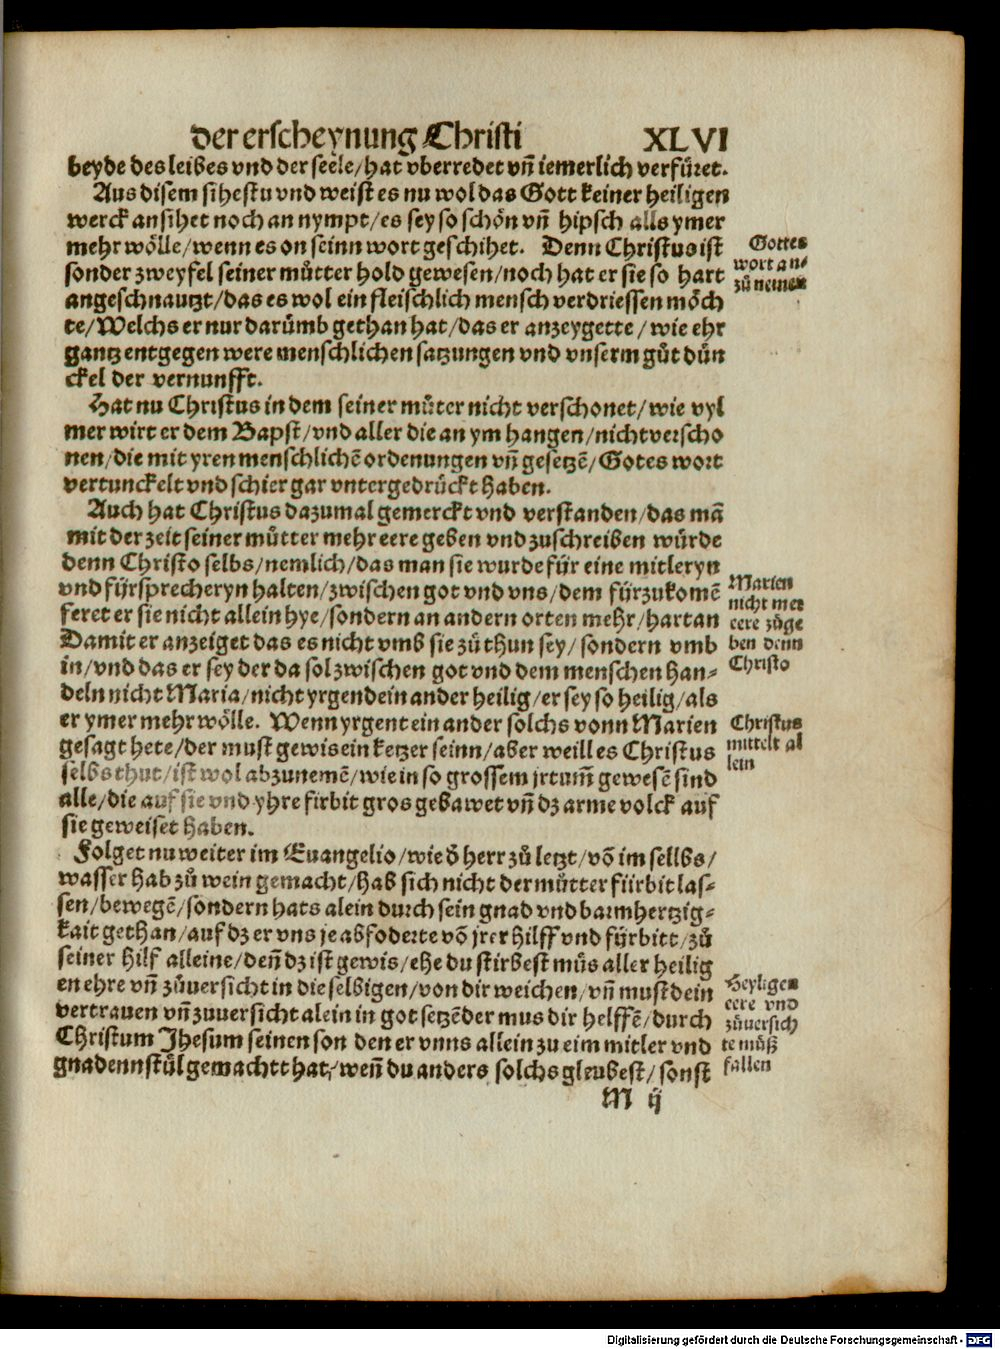 der erscheynung Christi XLVI
beyde des leibes vnd der seele/hat vberredet vñ iemerlich verfüret.
Aus disem sihestu vnd weist es nu wol das Gott keiner heiligen
werck ansihet noch an nympt/es sey so schön vñ hipsch alls ymer
mehr wölle/wenn es on seinn wort geschihet. Denn Christus ist
sonder zweyfel seiner můtter hold gewesen/noch hat er sie so hart
angeschnautzt/das es wol ein fleischlich mensch verdriessen möch
te/Welchs er nur darůmb gethan hat/das er anzeygette/wie ehr
gantz entgegen were menschlichen satzungen vnd vnserm gůt dün
ckel der vernunfft.
Hat nu Christus in dem seiner můter nicht verschonet/wie vyl
mer wirt er dem Bapst/vnd aller die an ym hangen/nicht verscho
nen/die mit yren menschlichē ordenungen vñ gesetzē/Gotes wort
vertunckelt vnd schier gar vntergedrückt haben.
Auch hat Christus dazumal gemerckt vnd verstanden/das mā
mit der zeit seiner můtter mehr eere geben vnd zuschreiben würde
denn Christo selbs/nemlich/das man sie wurde für eine mitleryn
vnd fürsprecheryn halten/zwischen got vnd vns/dem fürzukomē
feret er sie nicht allein hye/sondern an andern orten mehr/hart an
Damit er anzeiget das es nicht vmb sie zů thun sey/sondern vmb
in/vnd das er sey der da sol zwischen got vnd dem menschen han-
deln nicht Maria/nicht yrgendein ander heilig/er sey so heilig/als
er ymer mehr wölle. Wenn yrgent ein ander solchs vonn Marien
gesagt hete/der must gewis ein ketzer seinn/aber weill es Christus
selbs thut/ist wol abzunemē/wie in so grossem jrtum̃ gewesē sind
alle/die auf sie vnd yhre firbit gros gebawet vñ dz arme volck auf
sie geweiset haben.
Folget nu weiter im Euangelio/wie ð herr zů letzt/vō im sellbs/
wasser hab zů wein gemacht/hab sich nicht der můtter fürbit las-
sen/bewegē/sondern hats alein durch sein gnad vnd barmhertzig-
kait gethan/auf dz er vns je abfoderte vō jrer hilff vnd fürbitt/zů
seiner hilf alleine/deñ dz ist gewis/ehe du stirbest můs aller heilig
en ehre vñ zůversicht in die selbigen/von dir weichen/vñ must dein
vertrauen vñ zuuersicht alein in got setzē der mus dir helffē/durch
Christum Jhesum seinen son den er vnns allein zu eim mitler vnd
gnadennstůl gemachtt hat/weñ du anders solchs gleubest/sonst
M ij
Gottes
wort an-
zů nemen
Marien
nicht mer
eere zůge
ben denn
Christo
Christus
mittelt al
lein
Heyligen
eere vnd
zůuersich
te můß
fallen
Digitalisierung gefördert durch die Deutsche Forschungsgemeinschaft - DFG